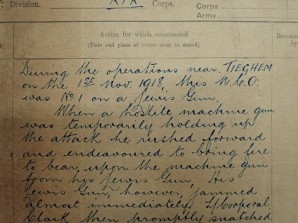 Division.
XIX
Corps.
Corps
Army
Action for which commended
(Date and place of action must be stated)
During the operations near TIEGHEM
on the 1st Nov. 1918, this N.C.O
was No 1 on a Lewis Gun.
When a hostile machine gun
was temporarily holding up
the attack he rushed forward
and endeavoured to bring fire
to bear upon the machine gun
from his Lewis Gun, his
Lewis Gun, however, jammed
almost immediately. L/Corporal
Clark then promptly snatched